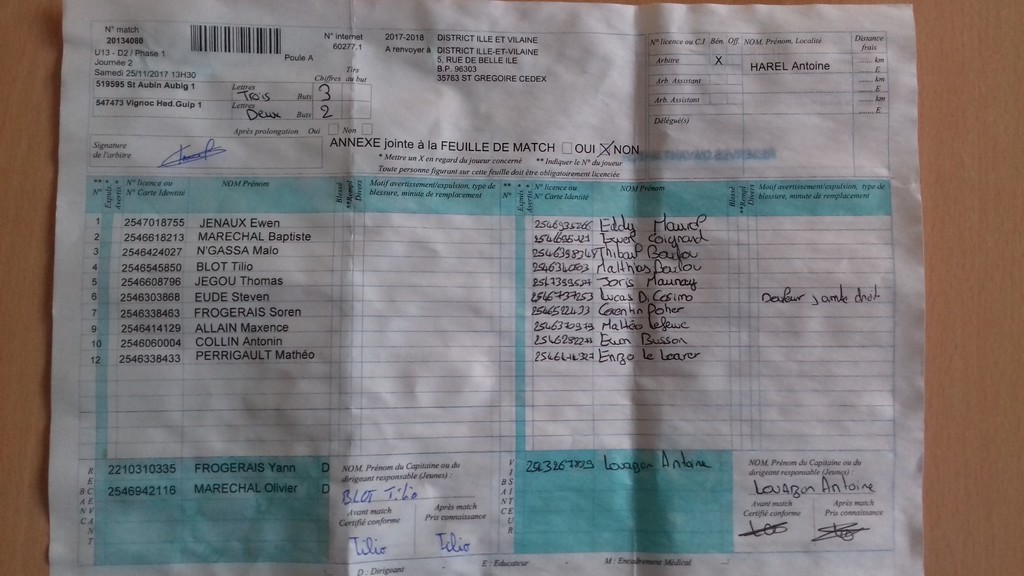 N° match
20134080
U13 - D2 / Phase 1
Poule A
Journée 2
Samedi 25/11/2017 13H30
N° internet
60277.1
2017-2018 DISTRICT ILLE ET VILAINE
A renvoyer à DISTRICT ILLE-ET-VILAINE
5, RUE DE BELLE ILE
B.P. 96303
35763 ST GREGOIRE CEDEX
Tirs
Chiffres au but
519595 St Aubin Aubig 1 Lettres Trois Buts 3
547473 Vignoc Hed.Guip 1 Lettres Deux Buts 2
Après prolongation Oui Non
Signature
de l'arbitre
N° licence ou C.I Bén. Off. NOM, Prénom, Localité Distance frais
Arbitre X HAREL Antoine km
E
Arb. Assistant km
E
Arb. Assistant km
E
Délégué(s)
ANNEXE jointe à la FEUILLE DE MATCH OUI X NON
* Mettre un X en regard du joueur concerné ** Indiquer le N° du joueur
Toute personne figurant sur cette feuille doit être obligatoirement licenciée
** N° * Expuls. * Avertis N° licence ou N° Carte Identité NOM Prénom Blessé **Rempl. Divers Motif avertissement/expulsion, type de blessure, minute de remplacement
** N° * Expuls. * Avertis N° licence ou N° Carte Identité NOM Prénom Blessé **Rempl. Divers Motif avertissement/expulsion, type de blessure, minute de remplacement
1 2547018755 JENAUX Ewen
2 2546618213 MARECHAL Baptiste
3 2546424027 N'GASSA Malo
4 2546545850 BLOT Tilio
5 2546608796 JEGOU Thomas
6 2546303868 EUDE Steven
7 2546338463 FROGERAIS Soren
9 2546414129 ALLAIN Maxence
10 2546060004 COLLIN Antonin
12 2546338433 PERRIGAULT Mathéo
Eddy
Thibaut
Matthias
Boris Maunay
Lucas Di Cosimo Douleur jambe droit
Corentin Poher
Mathéo Lefeuc
Ewen Busson
Enzo Le Loarer
RECEVANT
2210310335 FROGERAIS Yann D
2546942116 MARECHAL Olivier D
NOM, Prénom du Capitaine ou du
dirigeant responsable (Jeunes) :
BLOT Tilio
Avant match
Certifié conforme
Après match
Pris connaissance
Tilio Tilio
VISITEUR
Louazon Antoine
NOM, Prénom du Capitaine ou du
dirigeant responsable (Jeunes) :
Louazon Antoine
Avant match
Certifié conforme
Après match
Pris connaissance
D : Dirigeant - E : Educateur - M : Encadrement Médical